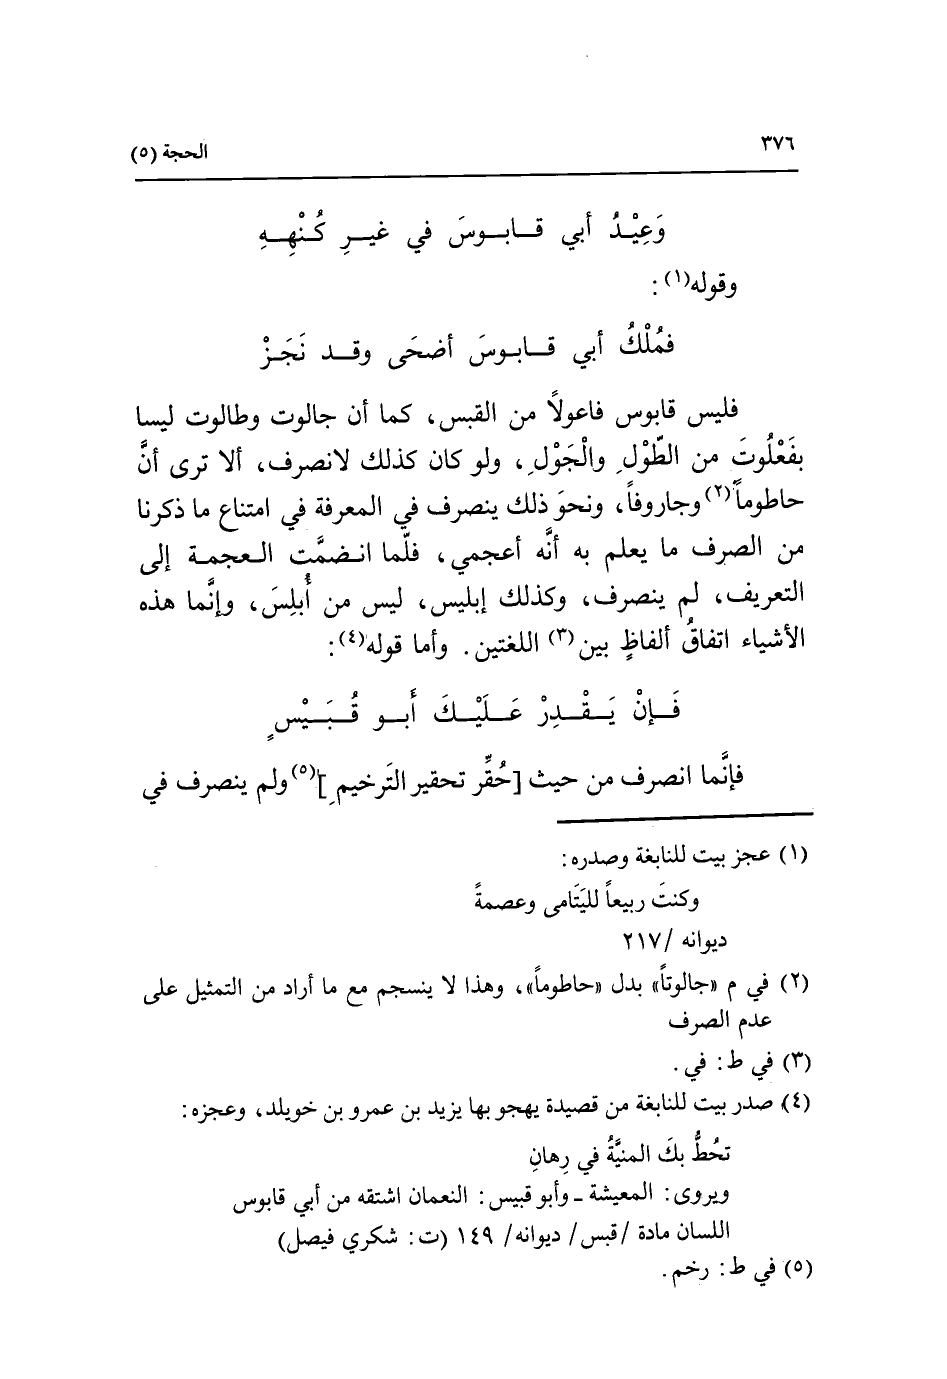 ٣٧٦
الحجة (٥)
وَعِيْدُ أبي قـابـوسَ في غيـرِ كُـنْهِـهِ
وقوله(١) :
فمُلْكُ أبي قـابـوسَ أضحَى وقـد نَجَـزْ
فليس قابوس فاعولاً من القبس، كما أن جالوت وطالوت ليسا
بفَعْلُوتَ من الطَّوْلِ والْجَوْلِ، ولو كان كذلك لانصرف، ألا ترى أنَّ
حاطوماً(٢) وجاروفاً، ونحوَ ذلك ينصرف في المعرفة في امتناع ما ذكرنا
من الصرف ما يعلم به أنَّه أعجمي، فلّما انضمَّت العجمة إلى
التعريف، لم ينصرف، وكذلك إبليس، ليس من أُبلِسَ، وإنَّما هذه
الأشياء اتفاقُ ألفاظٍ بين(٣) اللغتين. وأما قوله(٤):
فَـإنْ يَـقْـدِرْ عَـلَيْـكَ أَبـو قُـبَـيْسٍ
فإنَّما انصرف من حيث [حُقِّر تحقير التَرخيمِ](٥) ولم ينصرف في
(١) عجز بيت للنابغة وصدره:
وكنتَ ربيعاً لليَتَامى وعصمةً
ديوانه /٢١٧
(٢) في م «جالوتاً» بدل «حاطوماً»، وهذا لا ينسجم مع ما أراد من التمثيل على
عدم الصرف
(٣) في ط: في.
(٤) صدر بيت للنابغة من قصيدة يهجو بها يزيد بن عمرو بن خويلد، وعجزه:
تحُطُّ بكَ المنيَّةُ في رِهانِ
ويروى: المعيشة ـ وأبو قبيس: النعمان اشتقه من أبي قابوس
اللسان مادة /قبس/ ديوانه/ ١٤٩ (ت: شكري فيصل)
(٥) في ط: رخم.